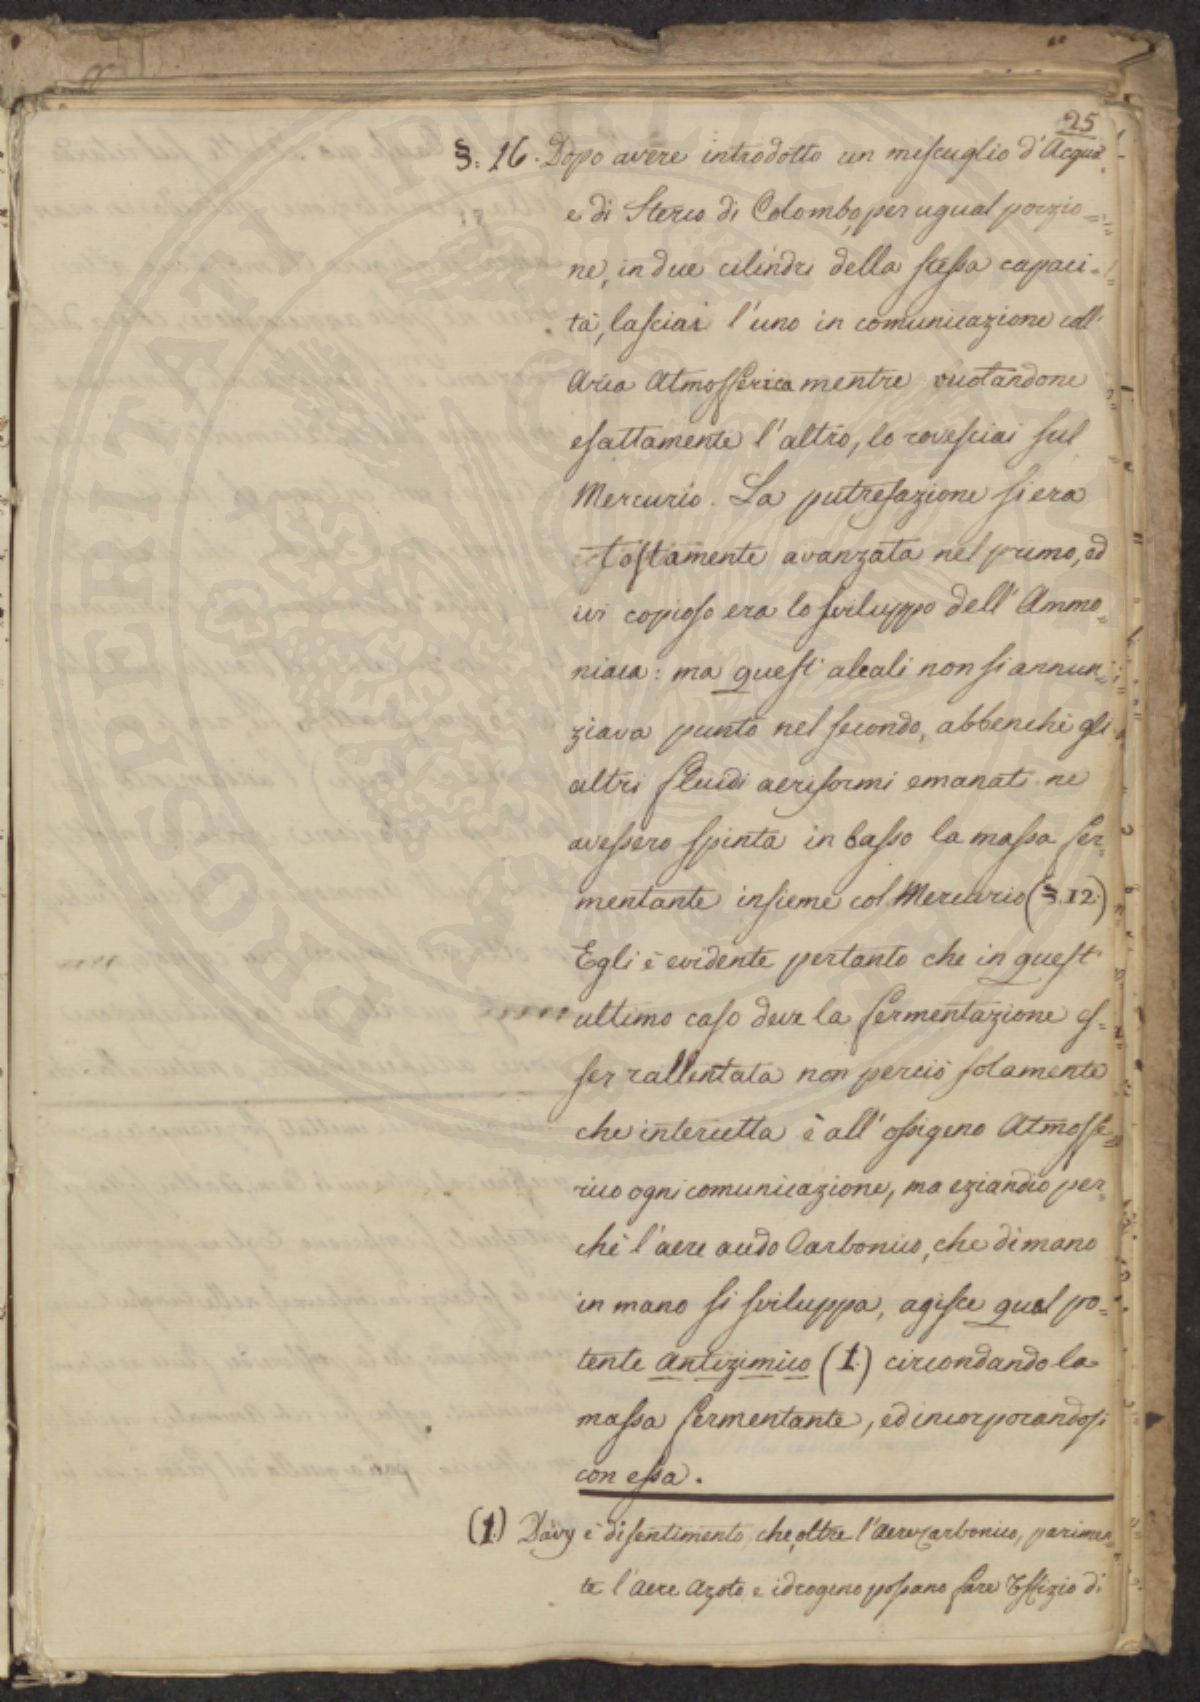 25
§. 16. Dopo avere introdotto un mescuglio d'Acqua
e di Sterco di Colombo, per ugual porzio=
ne, in due cilindri della stessa capaci=
tà, lasciai l'uno in comunicazione coll'
Aria Atmosferica mentre vuotandone
esattamente l'altro, lo rovesciai sul
Mercurio. La putrefazione si era
tostamente avanzata nel primo, ed
ivi copioso era lo sviluppo dell'Ammo=
niaca: ma quest'alcali non si annun=
ziava punto nel secondo, abbenchè gli
altri fluidi aeriformi emanati ne
avessero spinta in basso la massa fer=
mentante insieme col Mercurio (§. 12.)
Egli è evidente pertanto che in quest'
ultimo caso deve la fermentazione es=
ser rallentata non perciò solamente
che intercetta è all'ossigeno Atmosfe=
rico ogni comunicazione, ma eziandio per=
chè l'aere acido Carbonico, che di mano
in mano si sviluppa, agisce qual po=
tente antizimico (1.) circondando la
massa fermentante, ed incorporandosi
con essa.
(1.) Davy è di sentimento, che, oltre l'Aere carbonico, parimen=
te l'aere Azoto e idrogeno possano fare Uffizio di
PROSPERITATI PUBLICAE